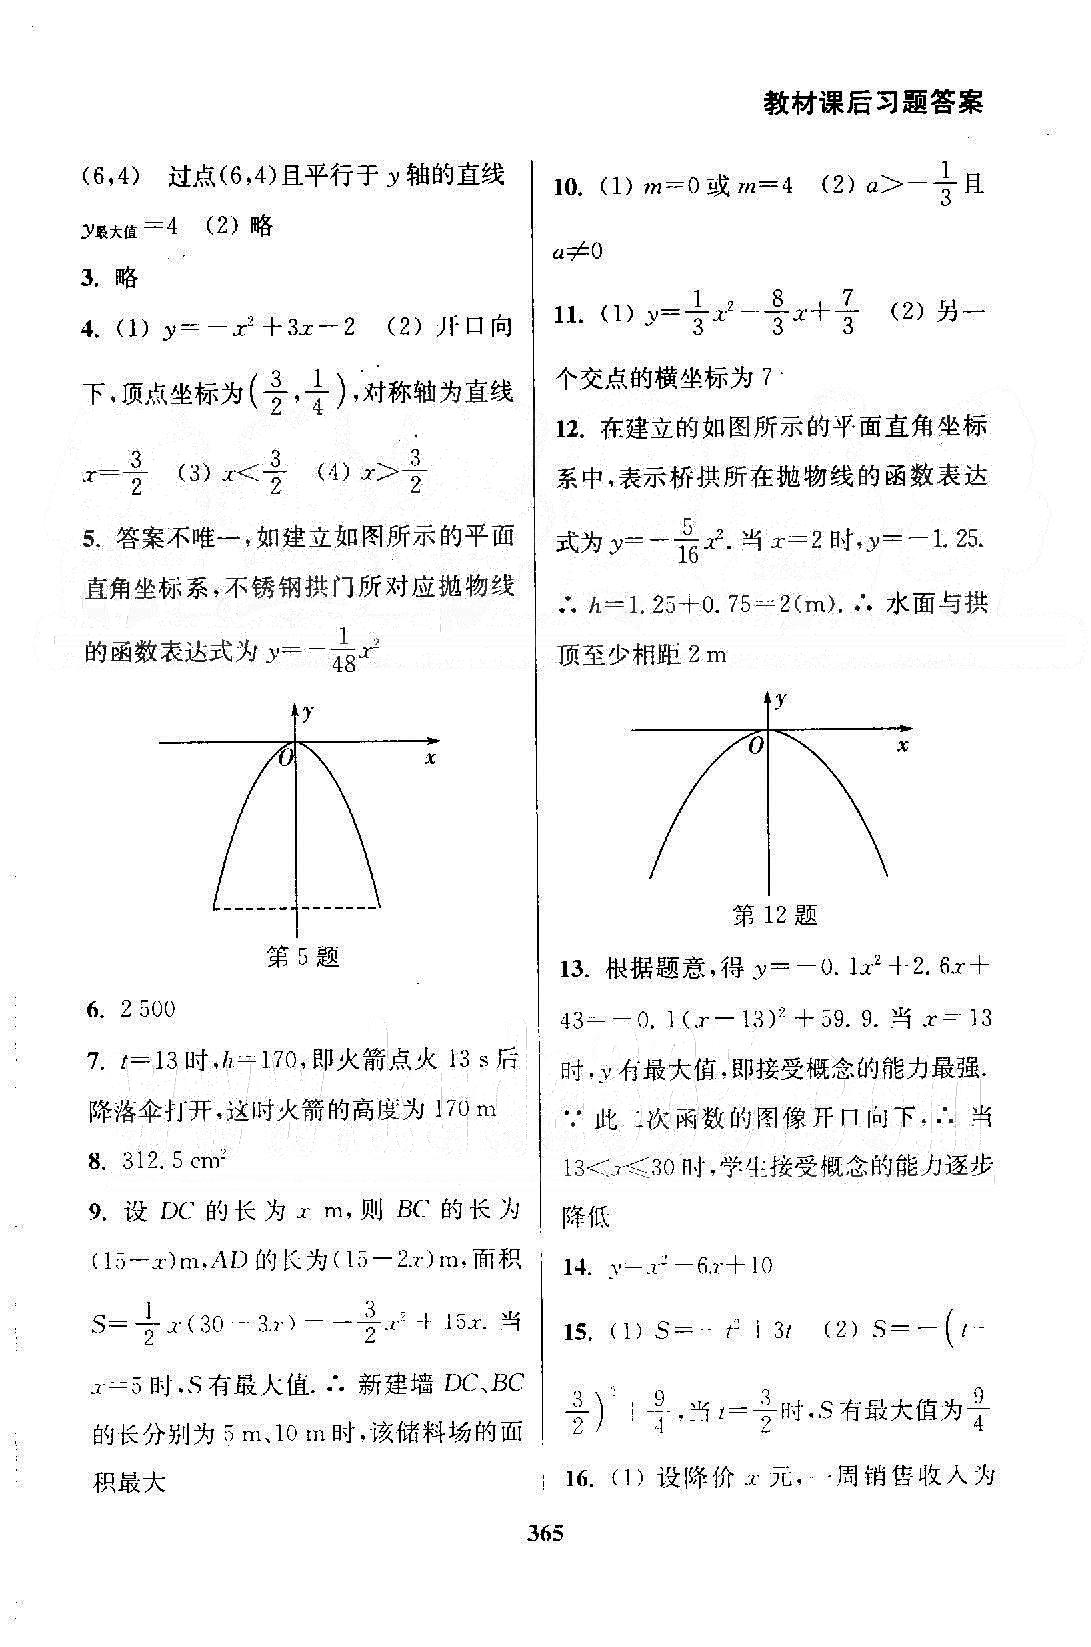 教材课后习题答案
(6,4) 过点(6,4)且平行于 y 轴的直线
y最大值=4 (2) 略
3. 略
4. (1) y=-x²+3x-2 (2) 开口向
下,顶点坐标为(3/2,1/4),对称轴为直线
x=3/2 (3) x<3/2 (4) x>3/2
5. 答案不唯一,如建立如图所示的平面
直角坐标系,不锈钢拱门所对应抛物线
的函数表达式为 y=-1/48x²
y
O
x
第 5 题
6. 2 500
7. t=13 时,h=170,即火箭点火 13 s 后
降落伞打开,这时火箭的高度为 170 m
8. 312.5 cm²
9. 设 DC 的长为 x m,则 BC 的长为
(15-x)m,AD 的长为(15-2x)m,面积
S=1/2x(30-3x)=-3/2x²+15x. 当
x=5 时,S 有最大值. ∴ 新建墙 DC、BC
的长分别为 5 m、10 m 时,该储料场的面
积最大
10. (1) m=0 或 m=4 (2) a>-1/3 且
a≠0
11. (1) y=1/3x²-8/3x+7/3 (2) 另一
个交点的横坐标为 7
12. 在建立的如图所示的平面直角坐标
系中,表示桥拱所在抛物线的函数表达
式为 y=-5/16x². 当 x=2 时,y=-1.25.
∴ h=1.25+0.75=2(m). ∴ 水面与拱
顶至少相距 2 m
y
O
x
第 12 题
13. 根据题意,得 y=-0.1x²+2.6x+
43=-0.1(x-13)²+59.9. 当 x=13
时,y 有最大值,即接受概念的能力最强.
∵ 此二次函数的图像开口向下,∴ 当
13<x≤30 时,学生接受概念的能力逐步
降低
14. y=x²-6x+10
15. (1) S=-t²+3t (2) S=-(t-
3/2)²+9/4,当 t=3/2时,S 有最大值为9/4
16. (1) 设降价 x 元,一周销售收入为
365